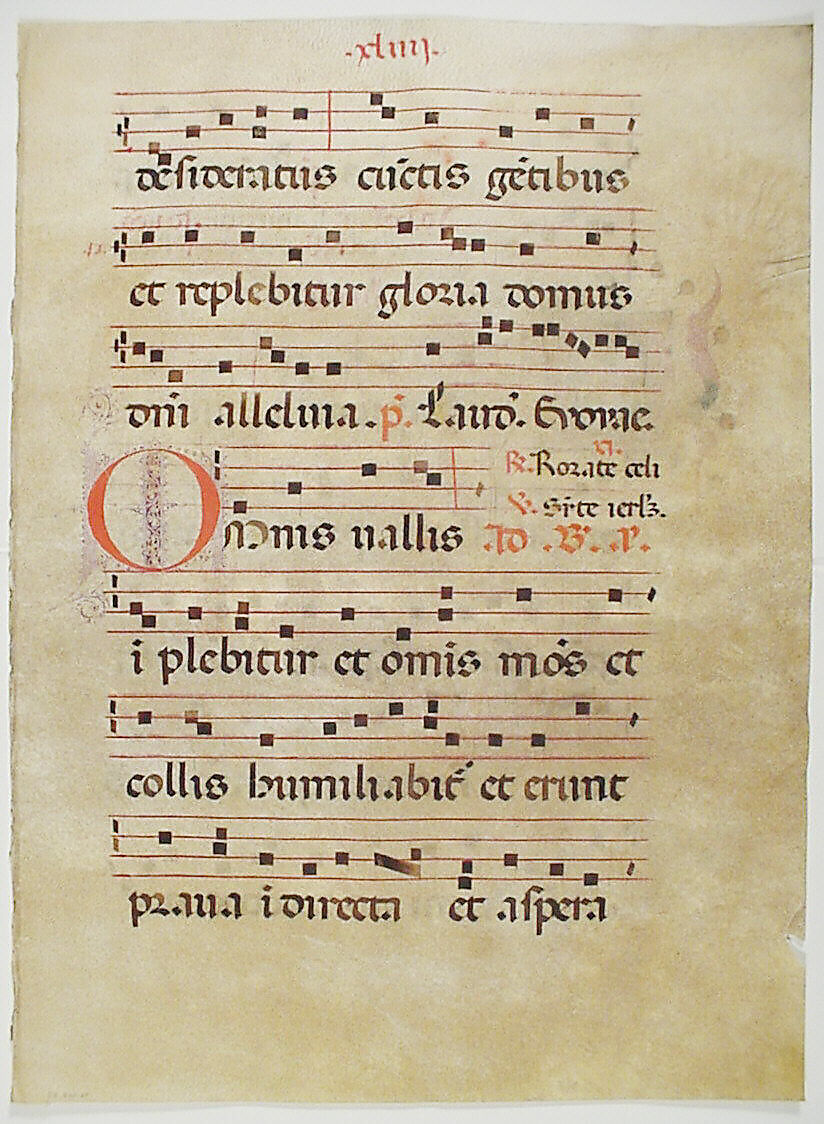 .xliiij.
dēsideratus cūctis gētibus
et replebitur gloria domus
dn̄i alleluia. p̄. Laud. Evovae.
R. Rorate celi
Omnis vallis Ad .B. .
i plebitur et om̄is mōs et
collis humiliabit᷑ et erunt
praua ī directa et aspera